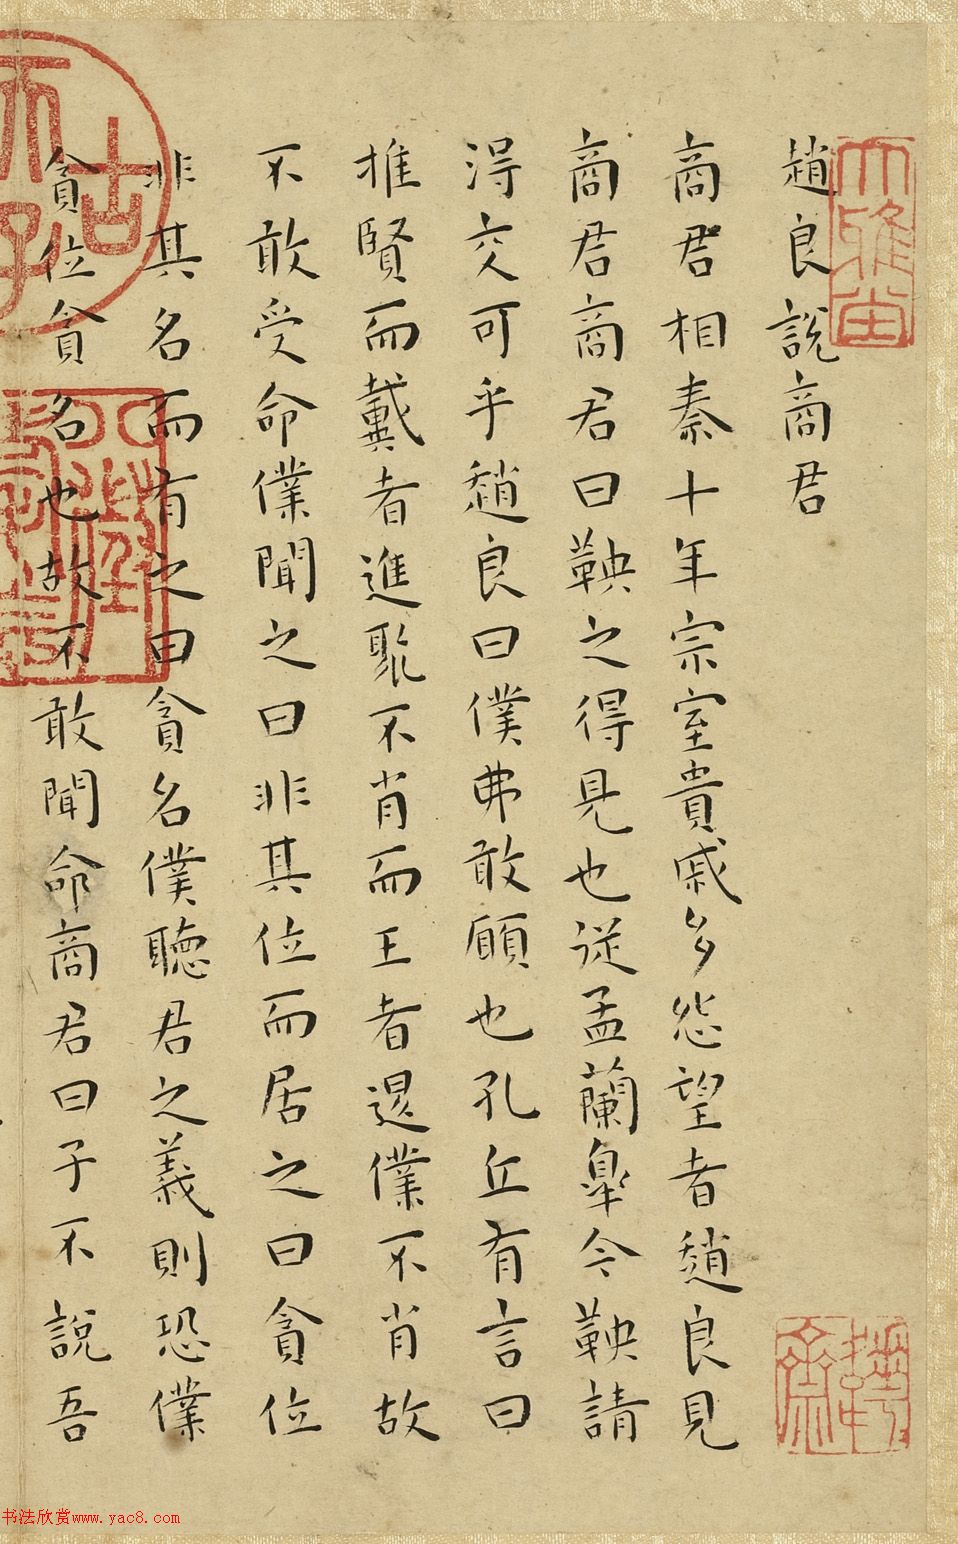 趙良說商君
商君相秦十年宗室貴戚多怨望者趙良見
商君商君曰鞅之得見也從孟蘭皐今鞅請
得交可乎趙良曰僕弗敢願也孔丘有言曰
推賢而戴者進聚不肖而王者退僕不肖故
不敢受命僕聞之曰非其位而居之曰貪位
非其名而有之曰貪名僕聽君之義則恐僕
貪位貪名也故不敢聞命商君曰子不說吾
大雅堂
古
天子
书法欣赏www.yac8.com